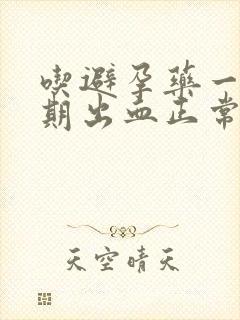 喫避孕藥一
期出血正常
天空晴天